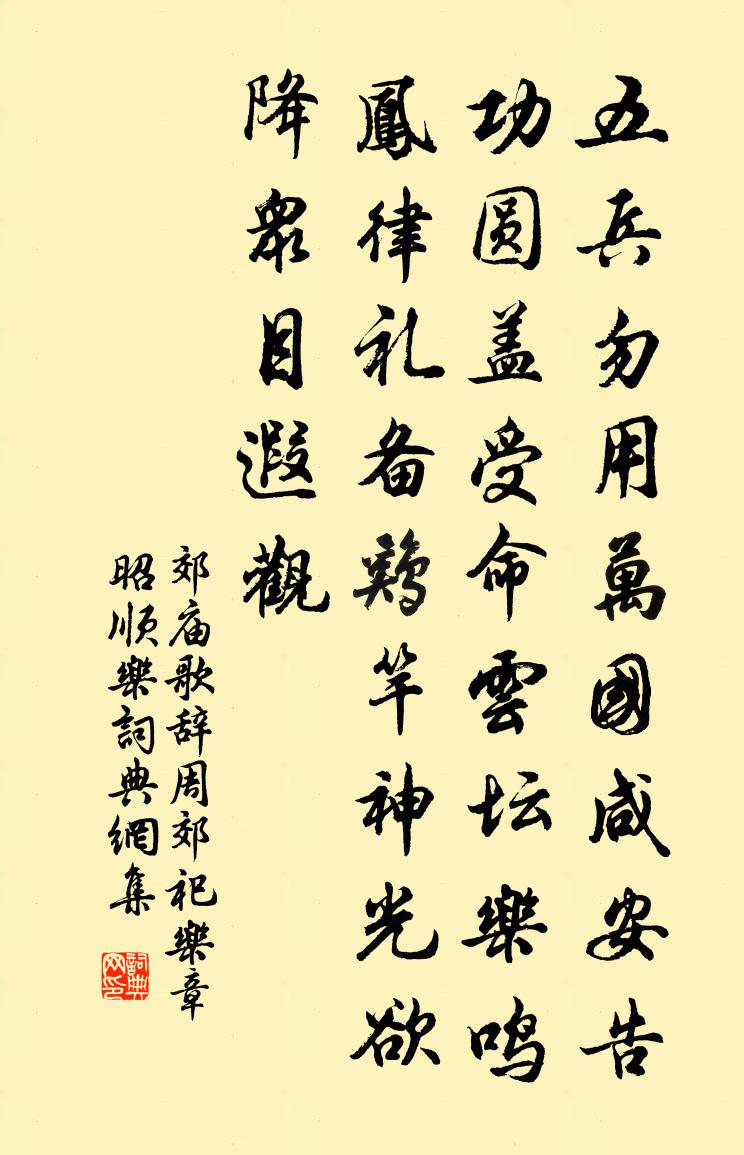 五兵勿用萬國咸安告
功圆盖受命雲坛樂鸣
鳳律礼备鷄竿神光欲
降衆目遐觀
郊庙歌辞周郊祀樂章
昭顺樂詞典網集
詞典网印